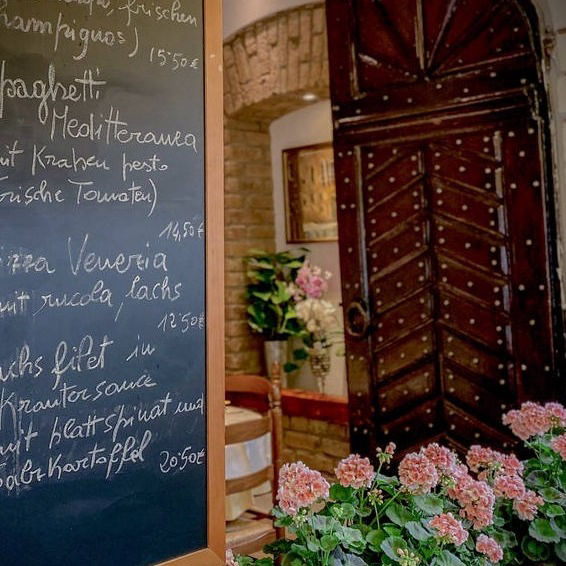 frischen
hampignos)
15.50€
paghetti
Meditteranea
it Kraben pesto
rische Tomaten)
14,50€
izza Veneria
it rucola, lachs
12.50€
chs filet in
Kräutersauce
it blattspinat und
Salzkartoffel
20.50€